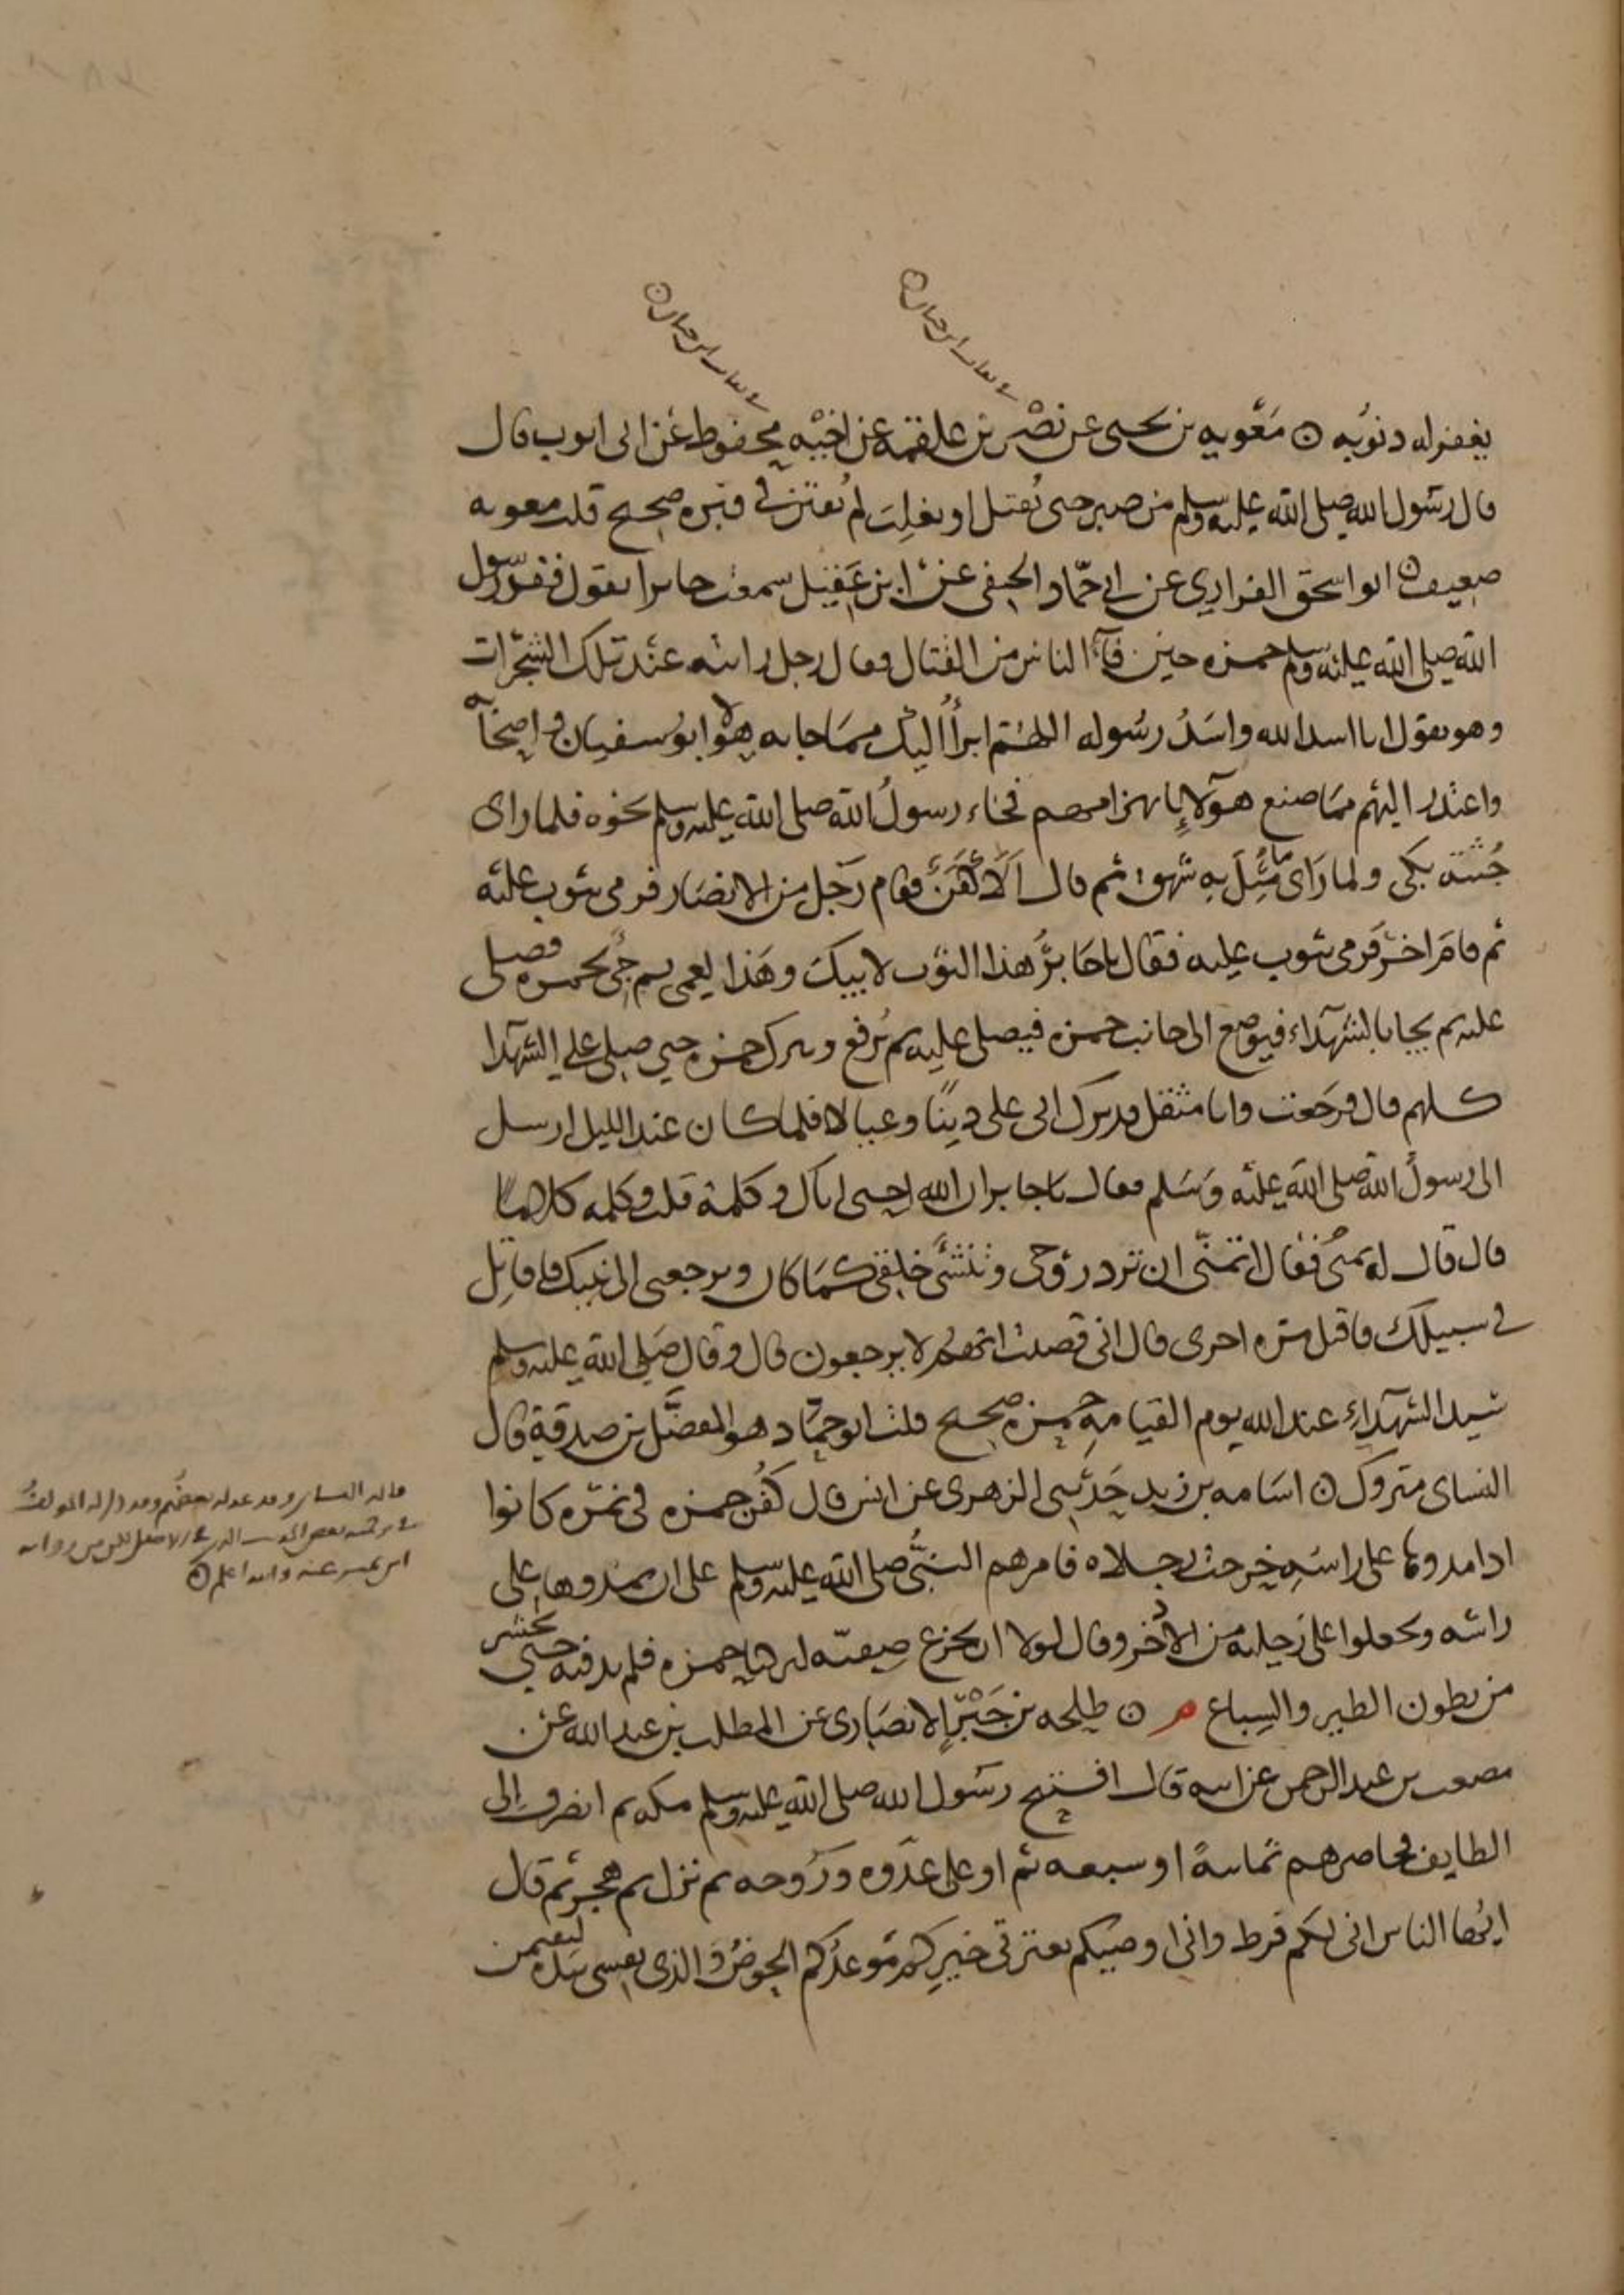 في ثقات ابن حبان
في ثقات ابن حبان
يغفر له ذنوبه ۞ معوية بن يحيى عن نصر بن علقمة عن اخيه محفوظ عن ابي ايوب قال
قال رسول الله صلى الله عليه وسلم من صبر حتى يُقتل او يغلب لم يفتن في قبره صحيح قلت معوية
ضعيف ۞ ابو اسحق الفزاري عن ابي حمّاد الحنفي عن ابن عَقيل سمعت جابرا يقول فقد رسول
الله صلى الله عليه وسلم حمزه حين فآء الناس من القتال فقال رجل رايته عند تلك الشجرات
وهو يقول انا اسد الله واسَدُ رسُوله اللهُمّ ابرأُ اليك مما جا به هولا ابو سفيان و اصحابه
واعتذر اليك مما صنع هولاءِ بانهزامهم فجاء رسولُ الله صلى الله عليه وسلم نحوه فلما راى
جُثته بكى ولما رَاى ما مُثِّلَ بِهِ شهق ثم قال اَلا كَفَن فقام رجل من الانصار فرمى بثوب عليه
ثم قام اخر فرمى بثوب عليه فقال يا جابرُ هذا الثوب لابيك وهَذا لعمى ثم جئ بحمزه فصلى
عليه ثم يجا بالشهداء فيوضع الى جانب حمزه فيصلى عليه ثم يُرفع ويترك حمزه حتى صلى على الشهدا
كلهم قال فرجعت وانا مثقل قد ترك ابى على دينًا وعيالا فلما كان عند الليل ارسل
الى رسولُ الله صلى الله عليه وسَلم فقال يا جابر ان الله احيى اباك وكلمه قلت وكلمه كلامًا
قال قال له تمنّ فقال اتمنّى ان ترد روحى وتنشئ خلقى كما كان وترجعنى الى نبيك فاقاتِل
في سبيلك فاقتل مره اخرى قال انى قضيت انهم لا يرجعون قال وقال صَلى الله عليه وسلم
سيد الشهداءِ عند الله يوم القيامهِ حمزه صحيح قلت ابو حمّاد هو المفضَّل بن صدقة قال
النساى متروك ۞ اسَامه بن زيد حَدثنى الزهرى عن انس قال كُفن حمزه في نمره كانوا
اذا مدوها على راسَهِ خرجت رجلاه فامرهم النبىُّ صلى الله عليه وسلم على ان يمدوها على
راسَه ويجعلوا على رجليه من الاذخر وقال لولا ان تجزع صفيّه لتركنا حمزه فلم ندفنه حتى يحشر
من بطون الطير والسِباع م ۞ طلحه بن جَبْر الانصارى عن المطلب بن عبد الله عن
مصعب بن عبد الرحمن عن ابيه قال افتتح رسول الله صلى الله عليه وسلم مكه ثم انصرف الى
الطايف فحاصرهم ثمانيةً او سبعه ثم اوغل غدوه وروحه ثم نزل ثم هجر ثم قال
ايُها الناس انى لكم فرط وانى اوصيكم بعترتى خيرا موعدكم الحوض والذى نفسى بيده لتقيمن
قاله النساى وقد عدله بعضُهم